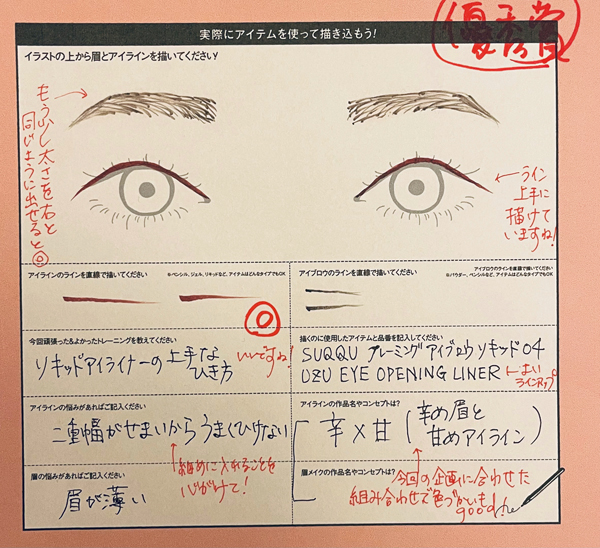 優秀賞
実際にアイテムを使って描き込もう!
イラストの上から眉とアイラインを描いてください
もう少し太さを右と
同じように出せると◎
ライン
上手に
描けて
いますね!
アイラインのラインを直線で描いてください
※ペンシル、ジェル、リキッドなど、アイテムはどんなタイプでもOK
アイブロウのラインを直線で描いてください
アイブロウのラインを直線で描いてください
※パウダー、ペンシルなど、アイテムはどんなタイプでもOK
今回頑張った&よかったトレーニングを教えてください
リキッドアイライナーの上手な
ひき方
いいですね!
描くのに使用したアイテムと品番を記入してください
SUQQU フレーミング アイブロウ リキッド 04
UZU EYE OPENING LINER
よい
ラインアップ
アイラインの悩みがあればご記入ください
二重幅がせまいからうまくひけない
細めに入れることを
心がけて!
アイラインの作品名やコンセプトは?
辛×甘(辛め眉と
甘めアイライン)
眉の悩みがあればご記入ください
眉が薄い
眉メイクの作品名やコンセプトは?
今回の企画に合わせた
組み合わせで色づかいも
good